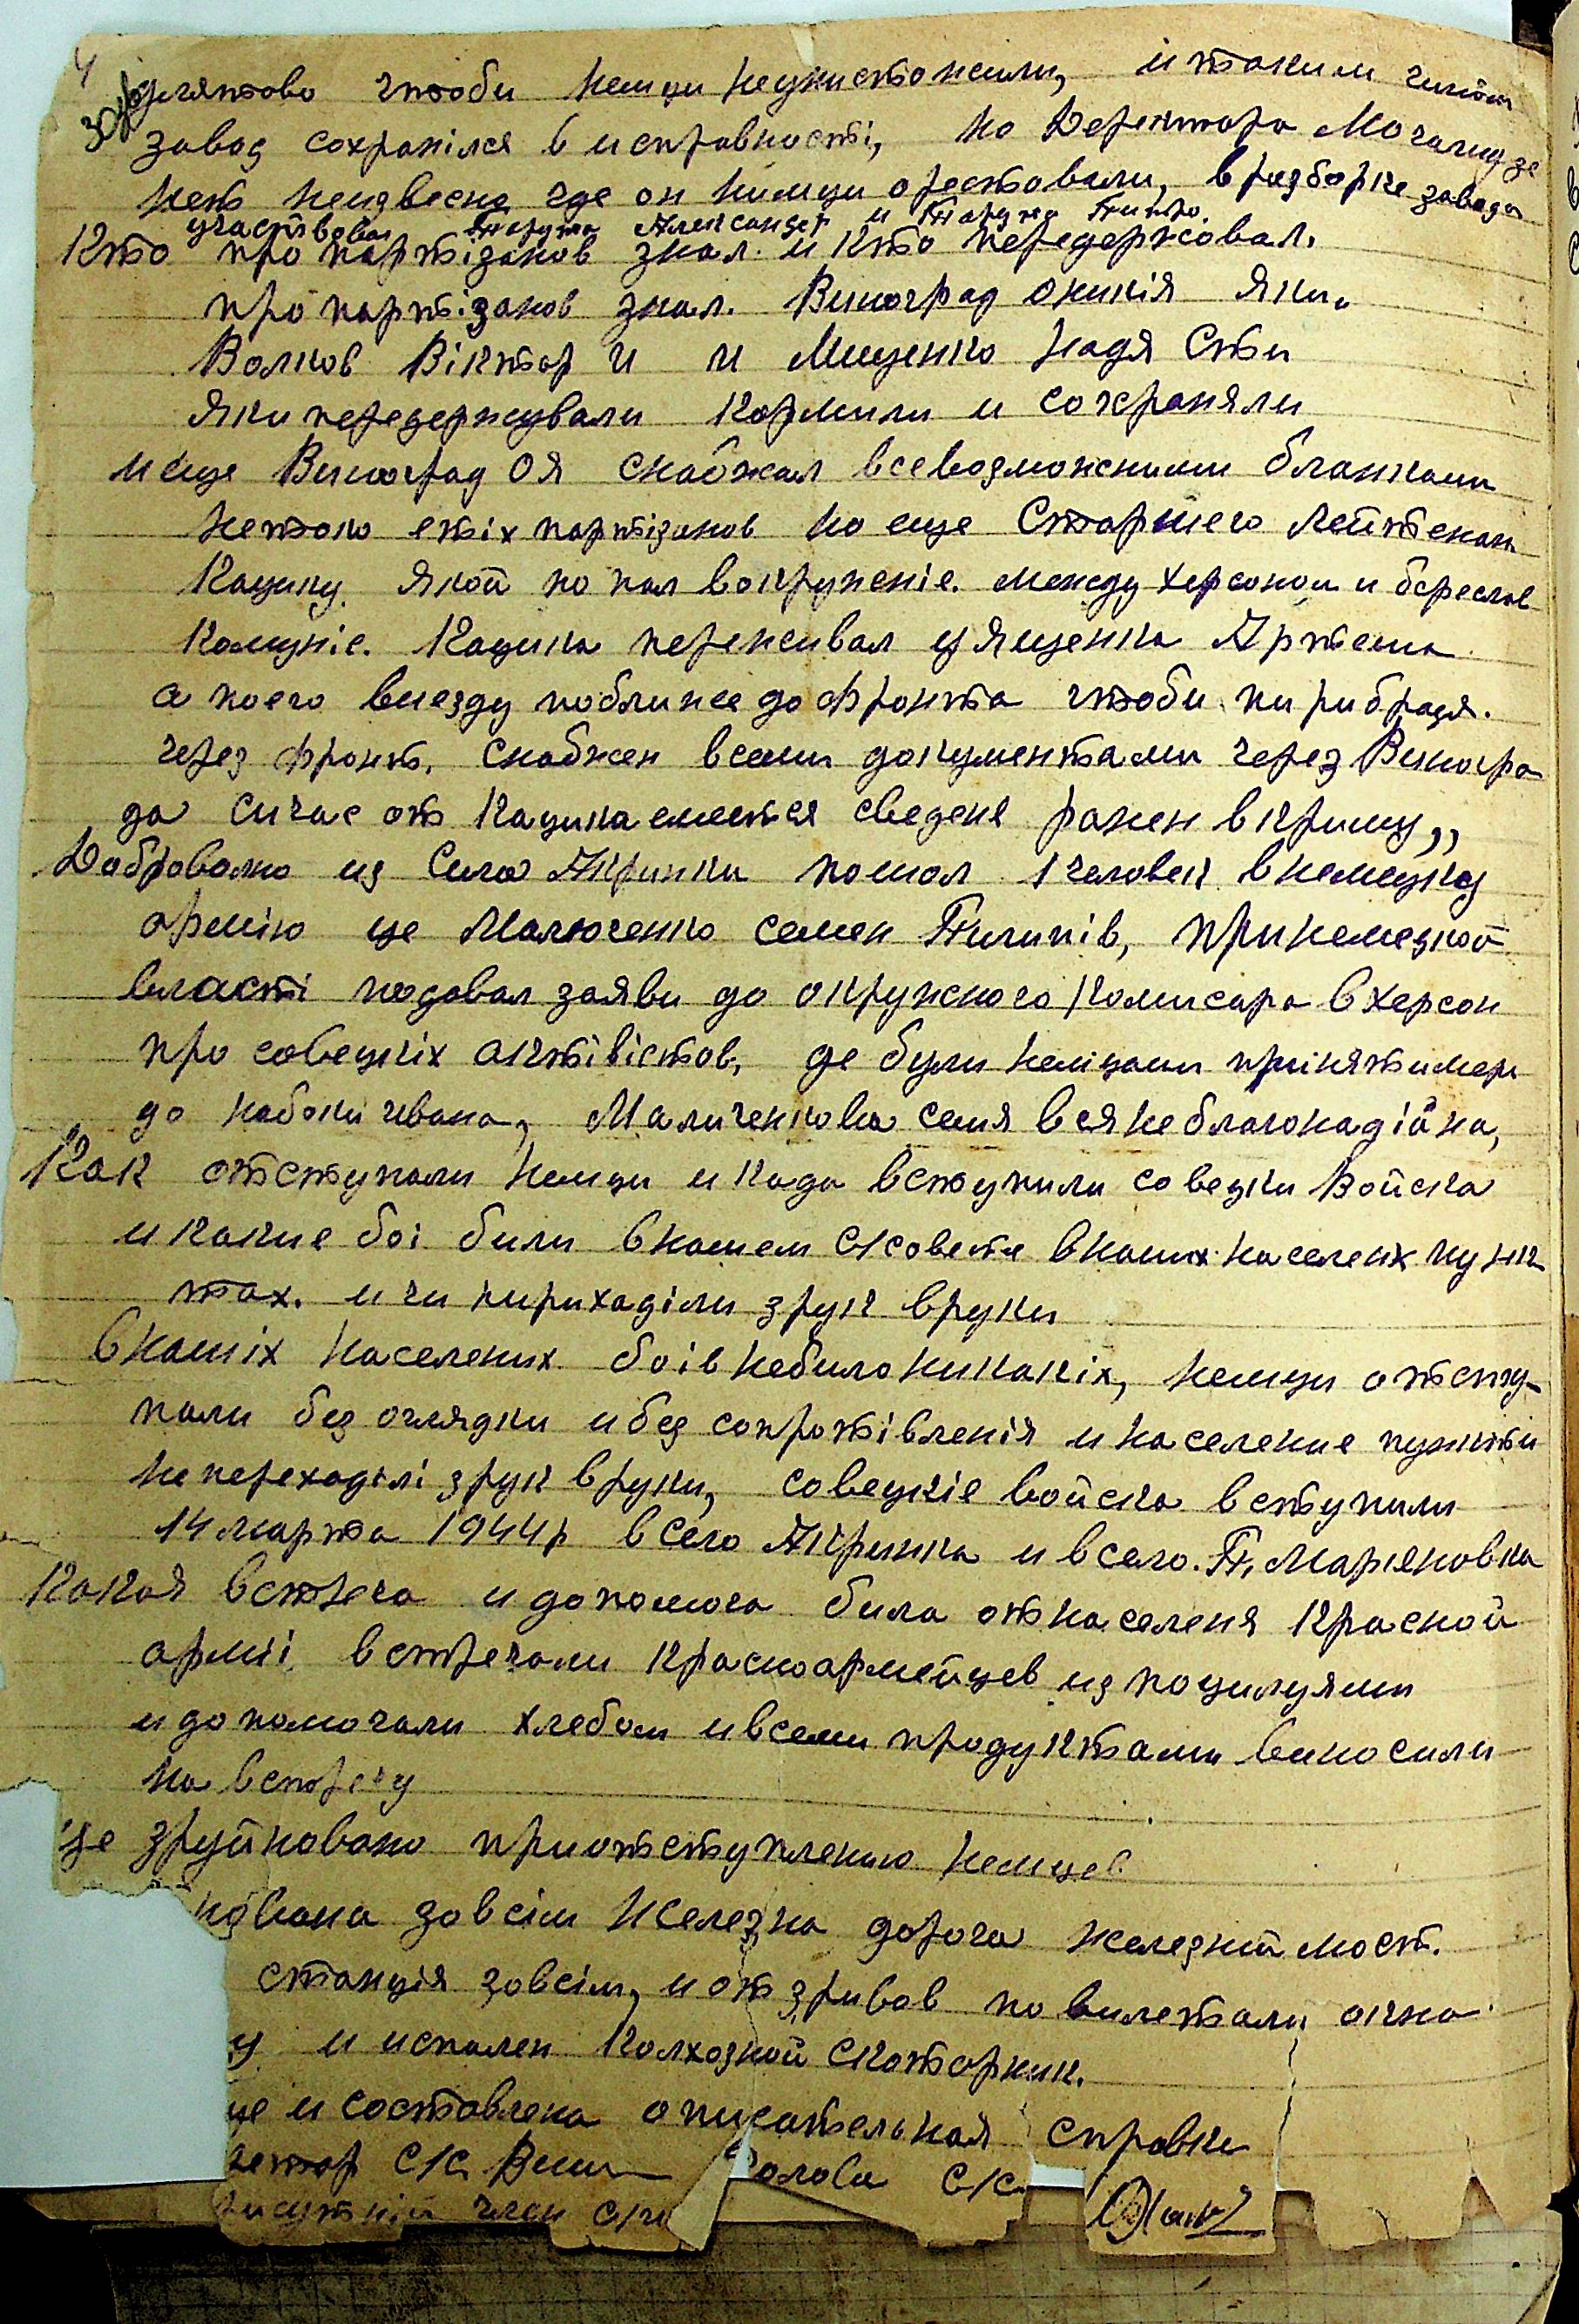 чтоби немци неунистожили, и таким чином
завод сохранілся в исправності, но Деректора
нет неизвесно где он нимци орестовали, в разборке завода
участвовал Александер и
Кто про партізанов знал. и кто передержовал.
про партізанов знал. Виноград Яки.
Волков Віктор и и Мищенко Надя
Яки передержували кормили и сохраняли
и еще Виноград ОЯ снабжал всевозможними бланками
нетоко етіх партізанов но еще Старшего Лейтенан
Кацику Якой попал вокруженіе. между Херсоном и береслав
Кацика переживал у Ященка Артема
а поего виезду поближе до фронта чтоби
через фронт. снабжен всеми документами через Виногра
да сичас от Кацика емеется сведеня ранен вкриму,,
Добровольно из Села Акринки пошол 1 человек внемецку
армію це Малюченко семен Пилипів, принемецкой
власті подовал заяви до окружного комисара вХерсон
про совецкіх актівістов, де були немцами
до Малюченкова семя вся неблагонадійна,
Как отступали немци и кода вступили совецки Войска
и какие бої били внашем с/совете внаших населених пунк
тах. и чи пириходіли зрук вруки
внашіх населених боів небило никакіх, немци отсту-
пали без оглядки и без сопротівленія и население пункти
непереходілі зрук вруки, совецкіе войска вступили
14 марта 1944р в село Акринка и в село. П. Марьяновка
Какая встреча и допомога била от населеня Красной
армії, встречали красноармейцев из поцилуями
и допомогали хлебом и всеми продуктами виносили
на встречу
ще зруйновано приотступленню немцев
зовсім железна дорога железний мост.
станція зовсім, и от зривов повилетали окна
у и испален колхозной скоторник.
це и составлена описательная справка
с/с. Голова с/с.
член с/с